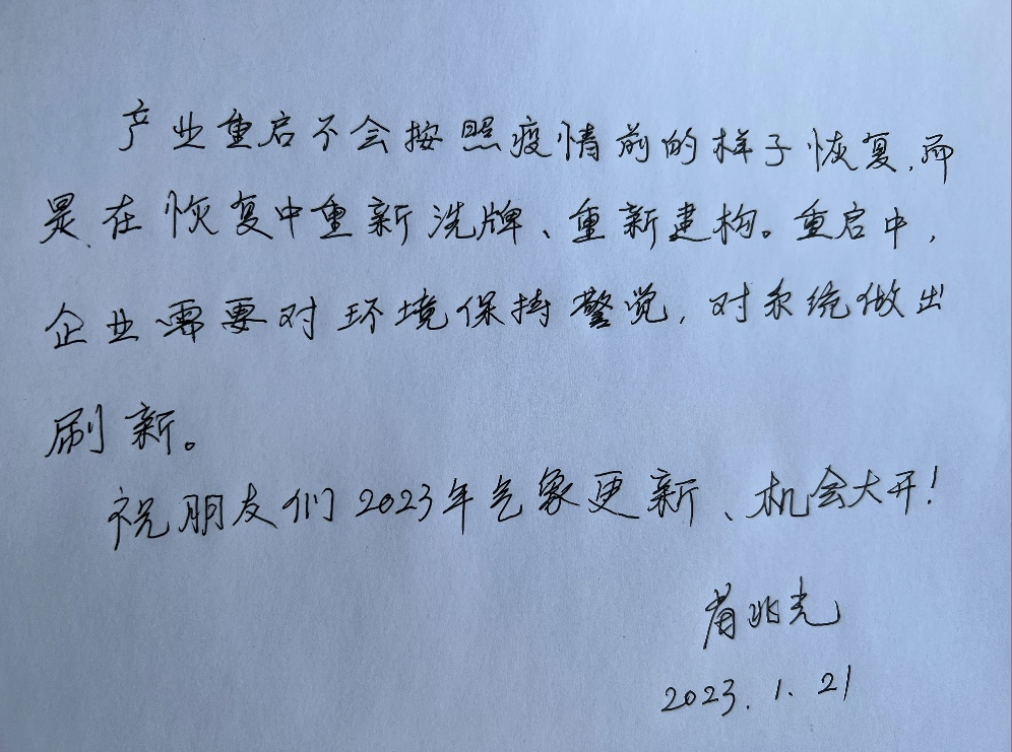 产业重启不会按照疫情前的样子恢复,而
是在恢复中重新洗牌、重新建构。重启中,
企业需要对环境保持警觉,对系统做出
刷新。
祝朋友们2023年气象更新、机会大开!
兆光
2023.1.21